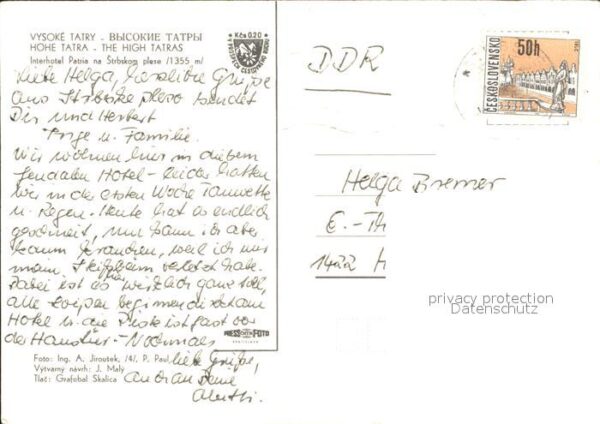 VYSOKÉ TATRY - ВЫСОКИЕ ТАТРЫ
HOHE TATRA - THE HIGH TATRAS
Interhotel Patria na Štrbskom plese /1355 m/
Kčs 0,20
Liebe Helga, herzliche Grüße
aus Strbske pleso sendet
Dir und Herbert
Inge u. Familie.
Wir wohnen hier in diesem
genialen Hotel - leider hatten
wir in der ersten Woche Tauwetter
u. Regen. Heute hat es endlich
geschneit, nur kann ich aber
kaum brauchen, weil ich mir
mein verletzt habe.
Dabei ist es wirklich ganz toll,
alle beginnen direkt am
Hotel u. die Piste ist fast vor
der Haustür - Nochmals
liebe Grüße,
auch an Deine
Foto: Ing. A. Jiroutek, /4/, P. Paul
Výtvarný návrh: J. Malý
Tlač: Grafobal Skalica
PRESSFOTO
BRATISLAVA
DDR
ČESKOSLOVENSKO
50h
TELČ
Helga Bremer
E.-Th
1422 H
privacy protection
Datenschutz